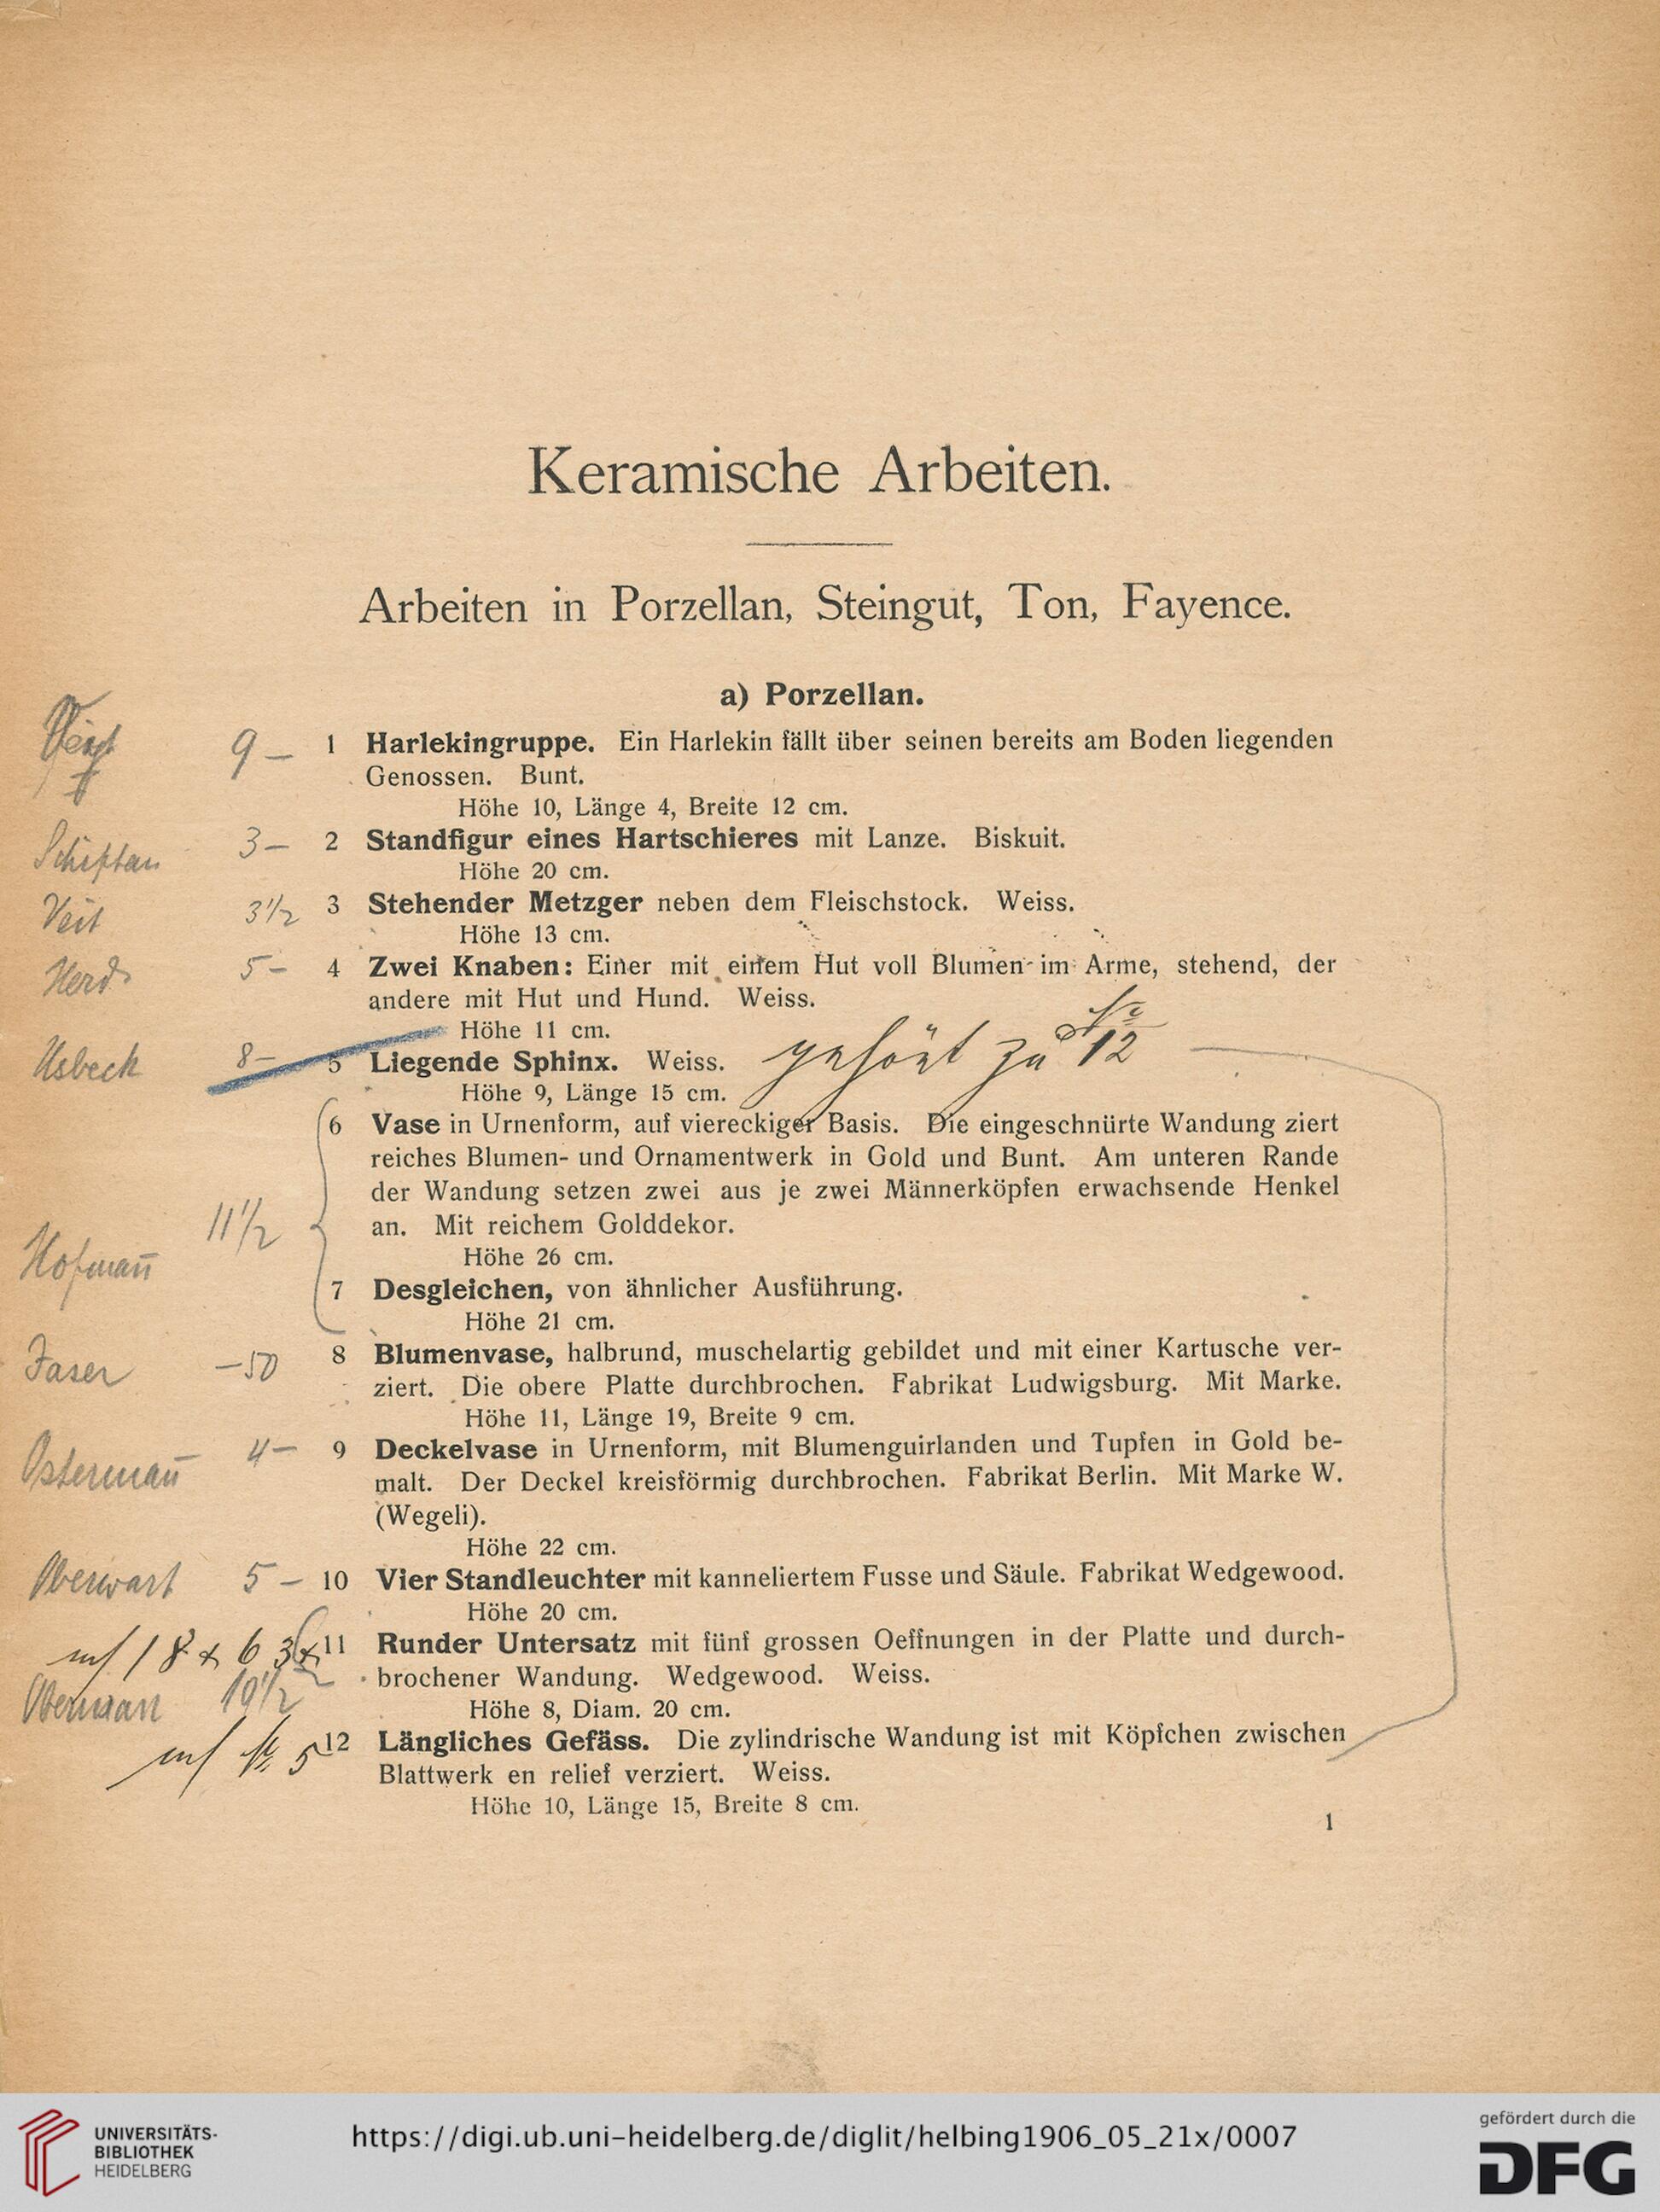 Keramische Arbeiten.
Arbeiten in Porzellan, Steingut, Ton, Fayence.
a) Porzellan.
9 — 1 Harlekingruppe. Ein Harlekin fällt über seinen bereits am Boden liegenden
Genossen. Bunt.
Höhe 10, Länge 4, Breite 12 cm.
Schiftan 3 — 2 Standfigur eines Hartschieres mit Lanze. Biskuit.
Höhe 20 cm.
Veit 3½ 3 Stehender Metzger neben dem Fleischstock. Weiss.
Höhe 13 cm.
5 — 4 Zwei Knaben: Einer mit einem Hut voll Blumen im Arme, stehend, der
andere mit Hut und Hund. Weiss.
Höhe 11 cm.
Usbeck 8 — 5 Liegende Sphinx. Weiss. gehört zu 12
Höhe 9, Länge 15 cm.
6 Vase in Urnenform, auf viereckiger Basis. Die eingeschnürte Wandung ziert
reiches Blumen- und Ornamentwerk in Gold und Bunt. Am unteren Rande
der Wandung setzen zwei aus je zwei Männerköpfen erwachsende Henkel
11½ an. Mit reichem Golddekor.
Hofman̄ Höhe 26 cm.
7 Desgleichen, von ähnlicher Ausführung.
Höhe 21 cm.
Faser —50 8 Blumenvase, halbrund, muschelartig gebildet und mit einer Kartusche ver-
ziert. Die obere Platte durchbrochen. Fabrikat Ludwigsburg. Mit Marke.
Höhe 11, Länge 19, Breite 9 cm.
Osterman̄ 4 — 9 Deckelvase in Urnenform, mit Blumenguirlanden und Tupfen in Gold be-
malt. Der Deckel kreisförmig durchbrochen. Fabrikat Berlin. Mit Marke W.
(Wegeli).
Höhe 22 cm.
5 — 10 Vier Standleuchter mit kanneliertem Fusse und Säule. Fabrikat Wedgewood.
Höhe 20 cm.
11 Runder Untersatz mit fünf grossen Oeffnungen in der Platte und durch-
brochener Wandung. Wedgewood. Weiss.
Höhe 8, Diam. 20 cm.
5 12 Längliches Gefäss. Die zylindrische Wandung ist mit Köpfchen zwischen
Blattwerk en relief verziert. Weiss.
Höhe 10, Länge 15, Breite 8 cm.
1
UNIVERSITÄTS-
BIBLIOTHEK
HEIDELBERG
https://digi.ub.uni-heidelberg.de/diglit/helbing1906_05_21x/0007
gefördert durch die
DFG